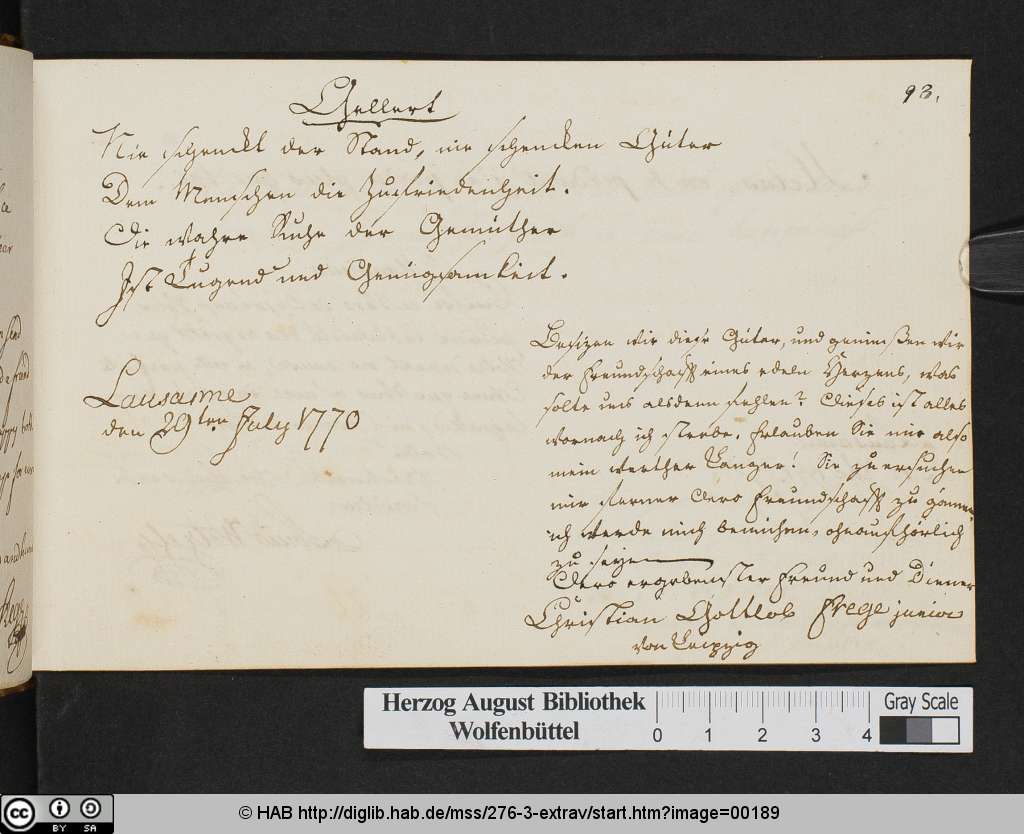 93.
Gellert
Nie schenckt der Stand, nie schencken Güter
Dem Menschen die Zufriedenheit.
Die wahre Ruhe der Gemüther
Ist Tugend und Genügsamkeit.
Lausanne
den 29ten July 1770
Besizen wir diese Güter, und geniessen wir
der Freundschafft eines edeln Herzens, was
solte uns alsdenn fehlen? Dieses ist alles
wornach ich strebe. Erlauben Sie mir also
mein werther Langer! Sie zu ersuchen
mir ferner dero Freundschafft zu gönnen
ich werde mich bemühen, ohnaufhörlich
zu seyn
Dero ergebenster Freund und Diener
Christian Gottlob Frege junior
von Leipzig
Herzog August Bibliothek
Wolfenbüttel
0 1 2 3 4
Gray Scale
cc BY SA
© HAB http://diglib.hab.de/mss/276-3-extrav/start.htm?image=00189